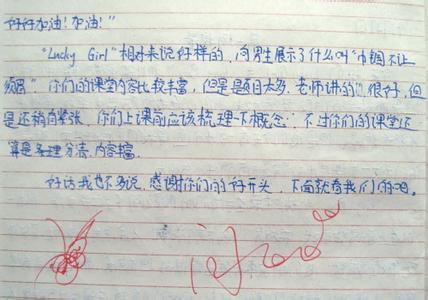 好好加油！加油！"
"Lucky Girl"相对来说好样的，向男生展示了什么叫"巾帼不让
须眉"，你们的课堂内容比较丰富，但是题目太多，老师讲的很好，但
是还稍有紧张，你们上课前应该梳理一下概念，不过你们的课堂还
算是条理分清，内容丰富。
好话我也不多说，感谢你们的好开头，下面就看我们的吧。